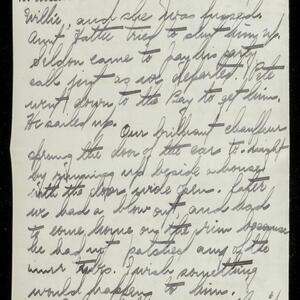 Willie, and she was fussed.
Aunt Hattie tried to shut him up.
Seldon came to pay his party
call just as we departed. Pete
went down to the Bay to get him.
He sailed up.
Our brilliant chauffeur
sprung the door of the car to-night
by jumping up beside a house
with the door wide open. Later
we had a blow out, and had
to come home on the rim because
he had not patched any of the
inner tubes. I wish something
would happen to him.